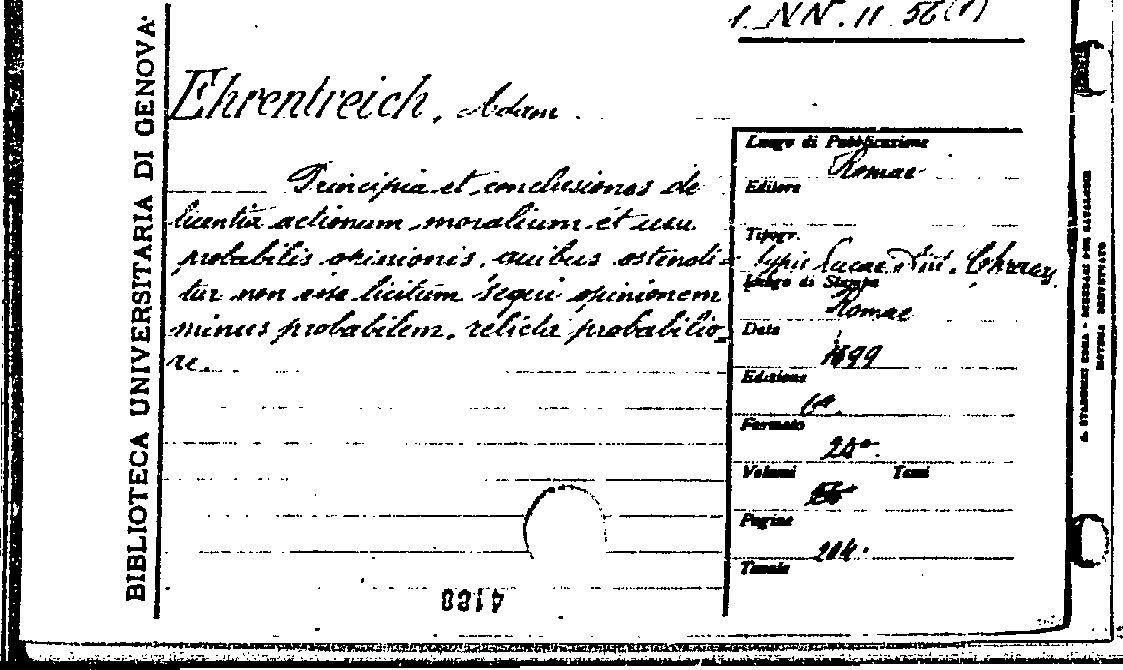 1. NN. 11 56 (1)
BIBLIOTECA UNIVERSITARIA DI GENOVA
Ehrentreich, Adam
Principia et conclusiones de
licentia actionum moralium et usu
probabilis opinionis, quibus ostendi-
tur non esse licitum sequi opinionem
minus probabilem, relicta probabilio-
re.
Luogo di Pubblicazione
Romae
Editore
Tipogr.
typis Lucae Ant.
Luogo di Stampa
Romae
Data
1699
Edizione
Formato
Volumi Tomi
Pagine
204.
Tavole
4180